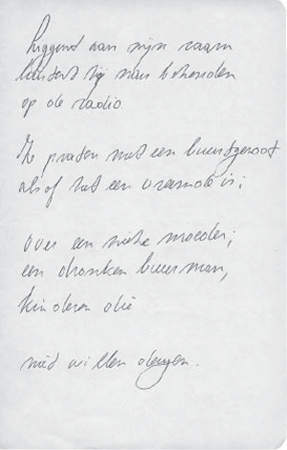 liggend aan mijn raam
luistert hij naar bekenden
op de radio

Ze praten met een buurtgenoot
alsof het een vreemde is;

over een zieke moeder;
een dronken buurman,
kinderen die

niet willen deugen.